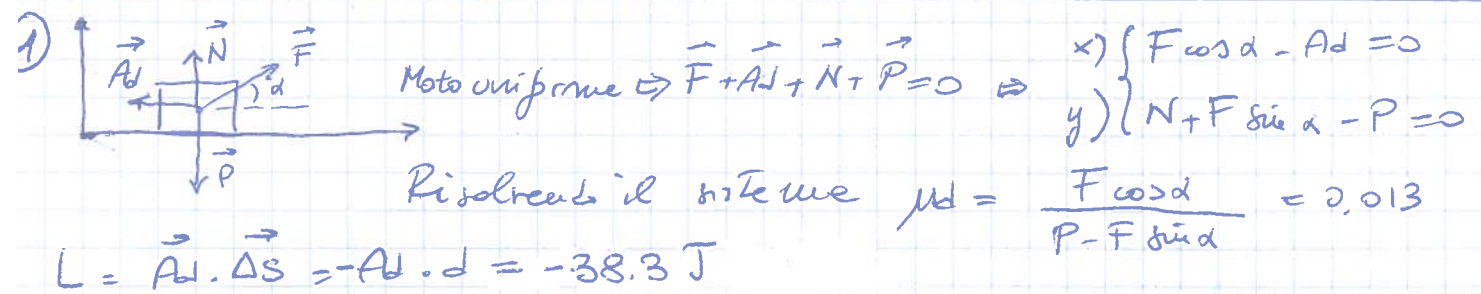 1)
→Ad →N →F α
→P
Moto uniforme ⇔ →F + →Ad + →N + →P = 0 ⇒ x) { F cosα - Ad = 0
y) { N + F sin α - P = 0
Risolvendo il sistema μd = F cosα / P - F sinα = 0,013
L = →Ad · →ΔS = -Ad · d = -38.3 J